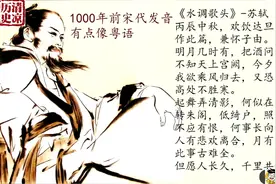 1000年前宋代发音
有点像粤语
《水调歌头》-苏轼
丙辰中秋，欢饮达旦
作此篇，兼怀子由。
明月几时有，把酒问
不知天上宫阙，今夕
我欲乘风归去，又恐
高处不胜寒。
起舞弄清影，何似在
转朱阁，低绮户，照
不应有恨，何事长向
人有悲欢离合，月有
此事古难全。
但愿人长久，千里